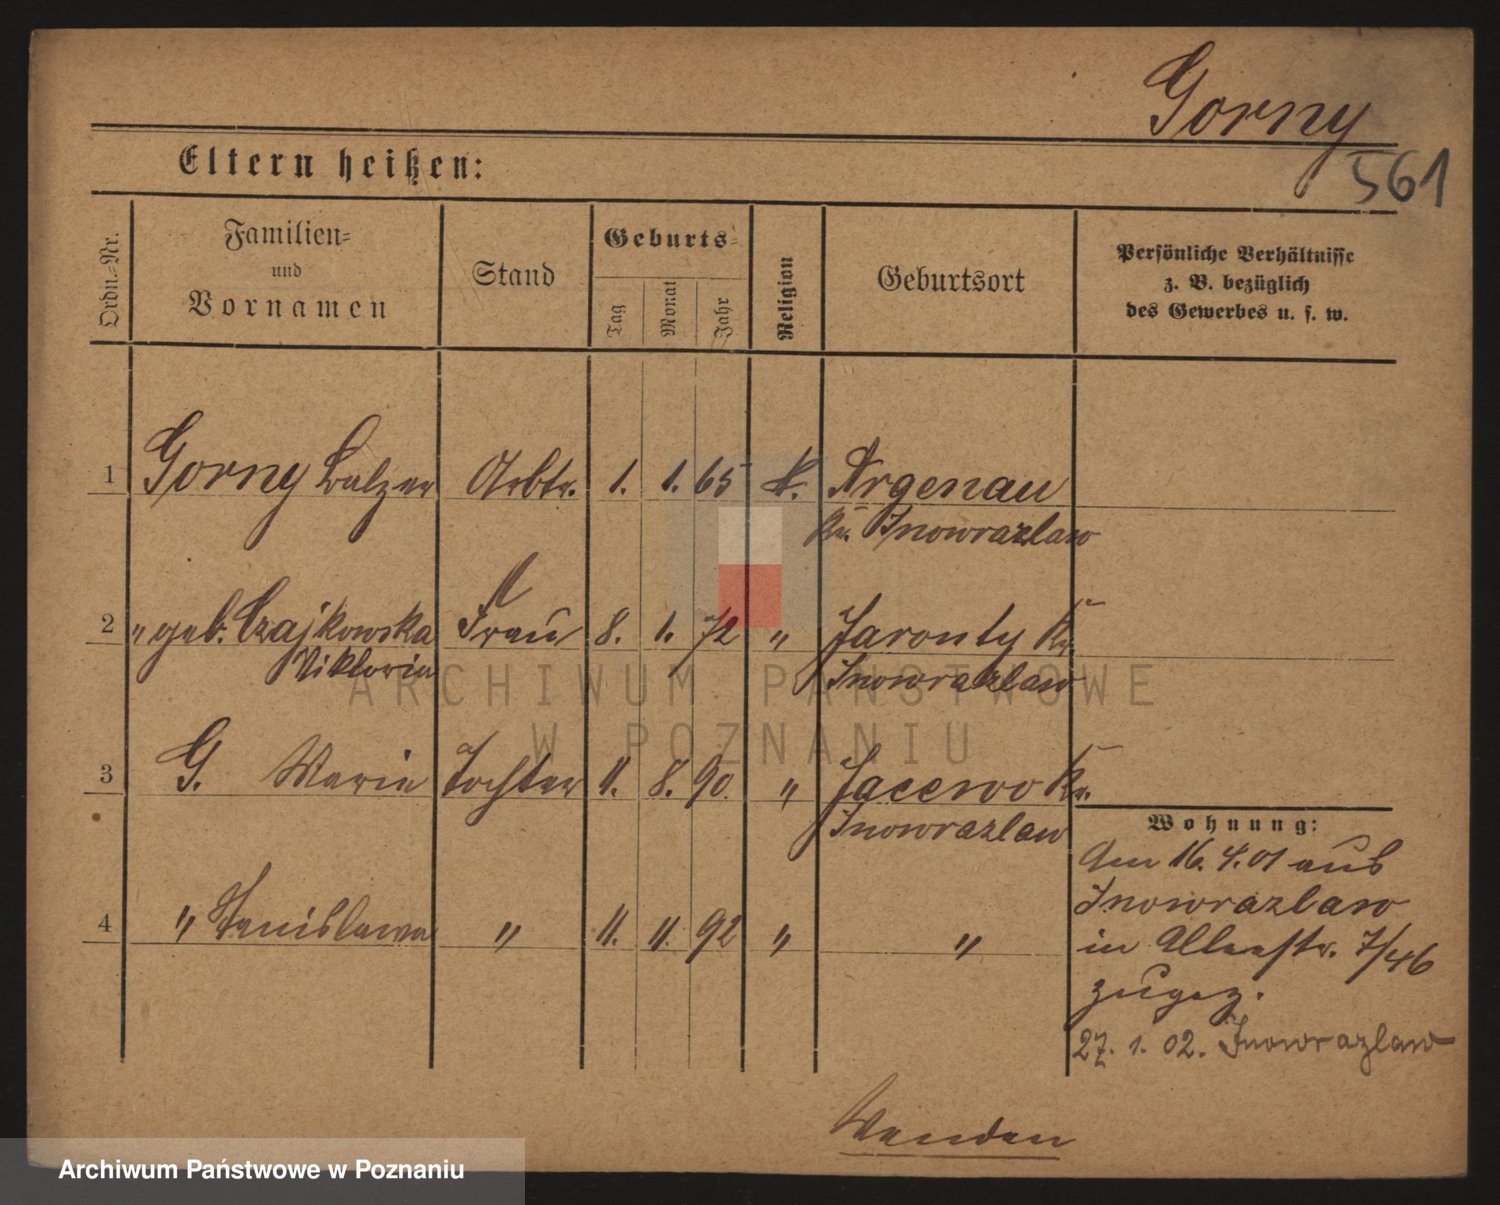 Gorny
561
Eltern heißen:
Ordn.-Nr.
Familien-
und
Vornamen
Stand
Geburts-
Tag
Monat
Jahr
Religion
Geburtsort
Persönliche Verhältnisse
z. B. bezüglich
des Gewerbes u. s. w.
1 Gorny Balzer Arbtr. 1. 1. 65 k. Argenau
Kr. Inowrazlaw
2 " geb. Czajkowska Frau 8. 1. 72 " Jaronty Kr.
Viktoria Inowrazlaw
3 G. Marie Tochter 11. 8. 90. " Jacewo Kr.
Inowrazlaw
4 " Stanislawa " 11. 11. 92 " "
Wohnung:
Am 16. 4. 01 aus
Inowrazlaw
in Alleestr. 7/46
zugez.
27. 1. 02. Inowrazlaw
Wenden
ARCHIWUM PAŃSTWOWE
W POZNANIU
Archiwum Państwowe w Poznaniu